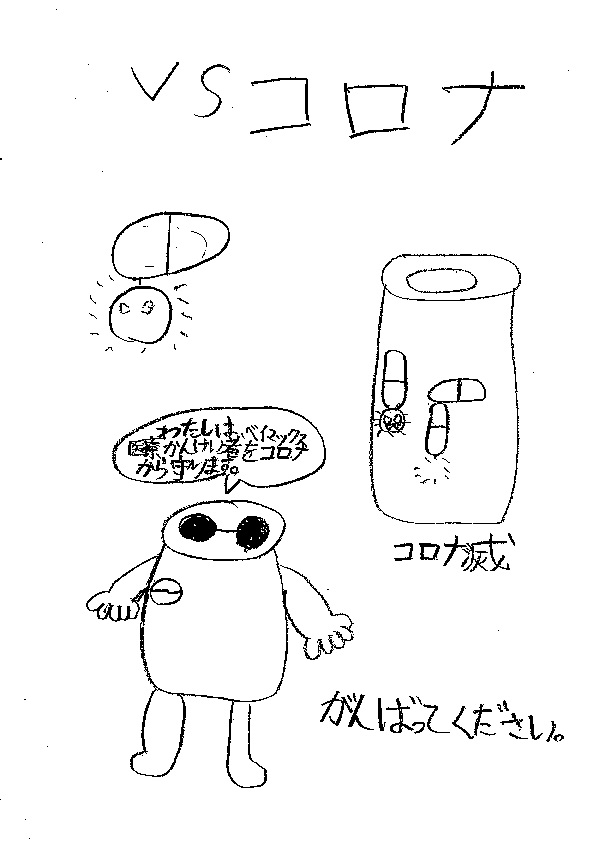 VSコロナ
わたしは、ベイマックス
医療かんけい者をコロナ
から守ります。
コロナ滅
がんばってください。